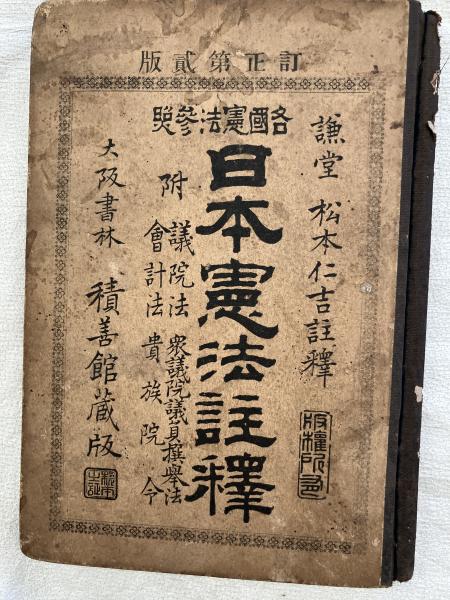 訂正第貳版
各國憲法參照
謙堂 松本仁吉註釋
版權所有
日本憲法註釋
附
議院法 衆議院議員撰擧法
會計法 貴族院令
大阪書林 積善館藏版